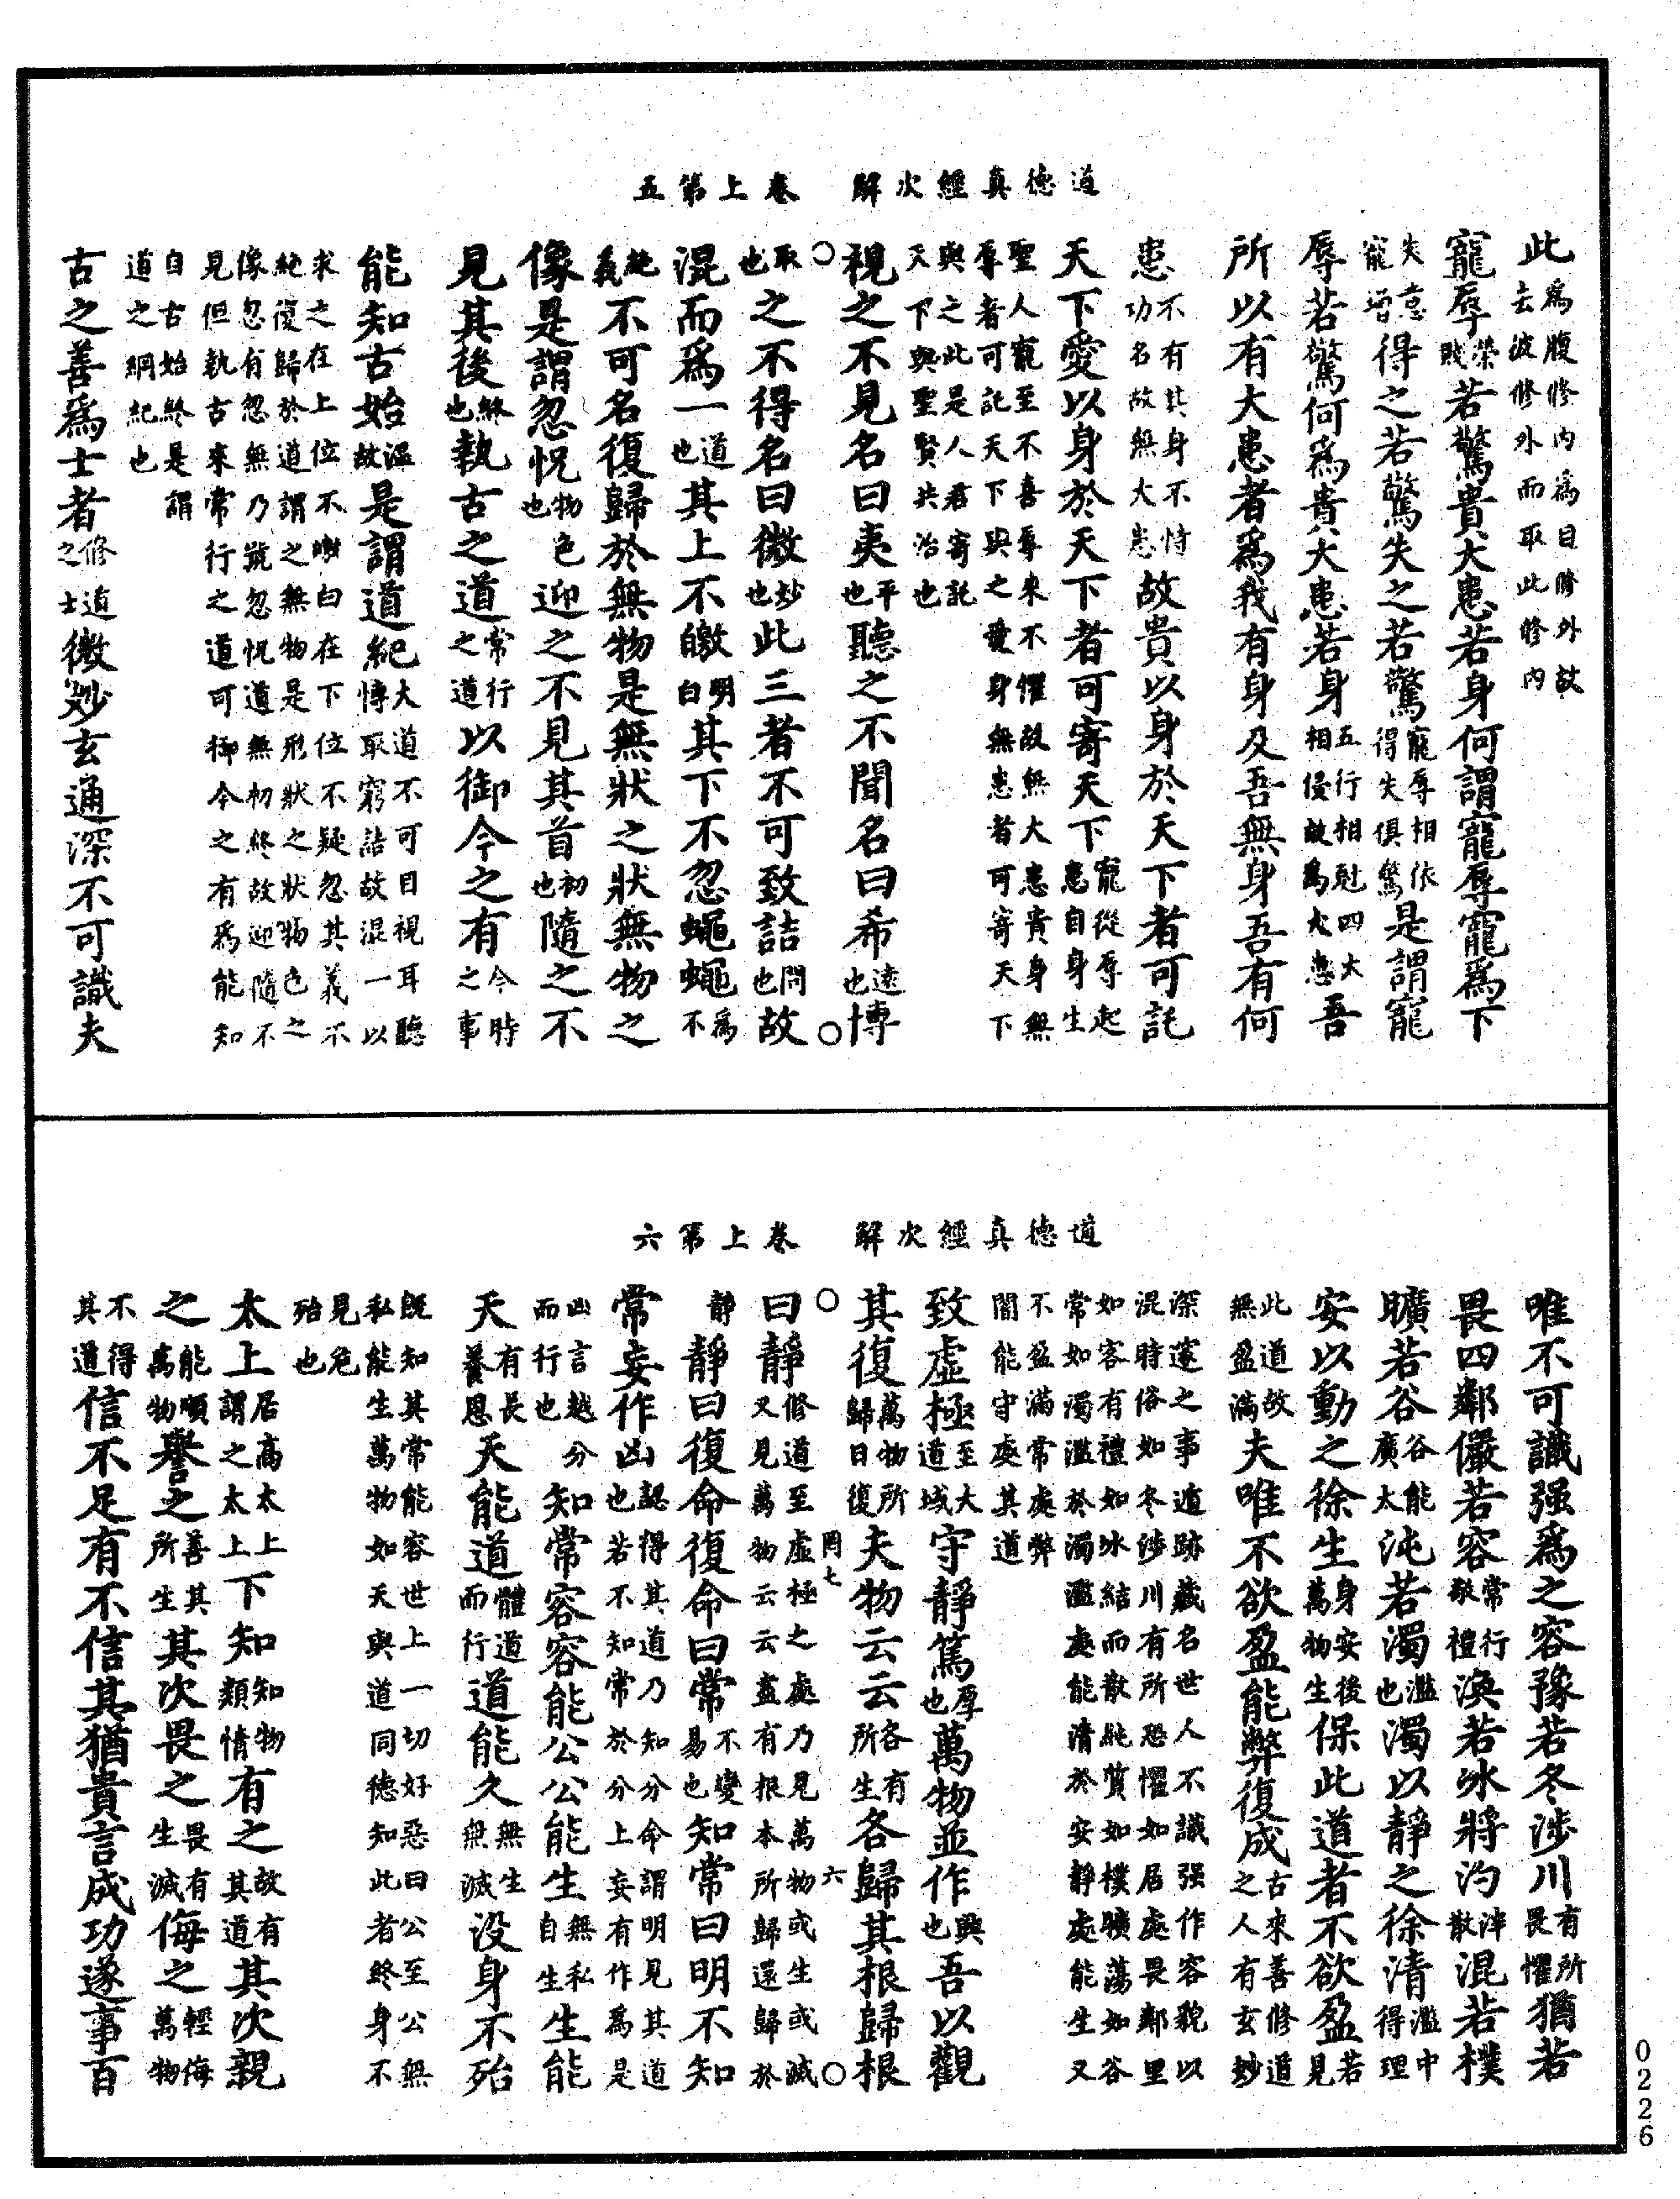 道德真經次解　卷上第五
此爲腹修内爲目修外故去彼修外而取此修内
寵辱榮賤若驚貴大患若身何謂寵辱寵爲下
失意寵增得之若驚失之若驚寵辱相依得失俱驚是謂寵
辱若驚何爲貴大患若身五行相尅四大相侵故爲大患吾
所以有大患者爲我有身及吾無身吾有何
患不有其身不恃功名故無大患故貴以身於天下者可託
天下愛以身於天下者可寄天下寵從辱起患自身生
聖人寵至不喜辱來不懼故無大患貴身無辱者可託天下與之愛身無患者可寄天下
與之此是人君寄託天下與聖賢共治也
視之不見名曰夷平也聽之不聞名曰希遠也博
取也之不得名曰微妙也此三者不可致詰問也故
混而爲一道也其上不皦明白其下不忽蠅蠅爲不
純義不可名復歸於無物是無狀之狀無物之
像是謂忽怳物色也迎之不見其首初也隨之不
見其後終也執古之道常行之道以御今之有今時之事
能知古始温故是謂道紀大道不可目視耳聽博取窮詰故混一以
求之在上位不皦白在下位不疑忽其義不純復歸於道謂之無物是形狀之狀物色之
像忽有忽無乃號忽怳道無初終故迎隨不見但執古來常行之道可御今之有爲能知
自古始終是謂道之綱紀也
古之善爲士者修道之士微妙玄通深不可識夫
道德真經次解　卷上第六
唯不可識强爲之容豫若冬涉川有所畏懼猶若
畏四鄰儼若容常行敬禮渙若冰將汋泮散混若樸
曠若谷谷能廣大沌若濁濫也濁以靜之徐清濫中得理
安以動之徐生身安後萬物生保此道者不欲盈若見
此道故無盈滿夫唯不欲盈能弊復成古來善修道之人有玄妙
深邃之事遁跡藏名世人不識强作容貌以混時俗如冬涉川有所恐懼如居處畏鄰里
如容有禮如冰結而散純質如樸曠蕩如谷常如濁濫於濁濫處能清於安靜處能生又
不盈滿常處弊闇能守處其道
致虛極至大道域守靜篤厚也萬物並作興也吾以觀
其復萬物所歸曰復夫物云云各有所生各歸其根歸根
曰靜修道至虛極之處乃見萬物或生或滅又見萬物云云盡有根本所歸還歸於
靜靜曰復命復命曰常不變易也知常曰明不知
常妄作凶認得其道乃知分命謂明見其道也若不知常於分上妄有作爲是
凶言越分而行也知常容容能公公能生無私自生生能
天有長養恩天能道體道而行道能久無生無滅没身不殆
既知其常能容世上一切好惡曰公至公無私能生萬物如天與道同德知此者終身不
見危殆也
太上居高太上謂之太上下知知物類情有之故有其道其次親
之能順萬物譽之善其所生其次畏之畏有生滅侮之輕侮萬物
不得其道信不足有不信其猶貴言成功遂事百
罔七
六
0226